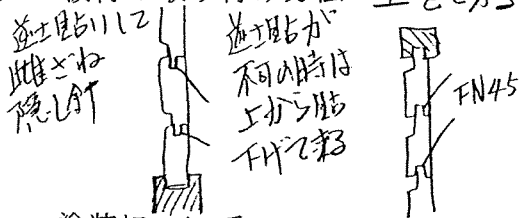 逆士貼りして
雌ざね
隠し釘
逆士貼が
不可の時は
上から貼
下げて来る
FN45